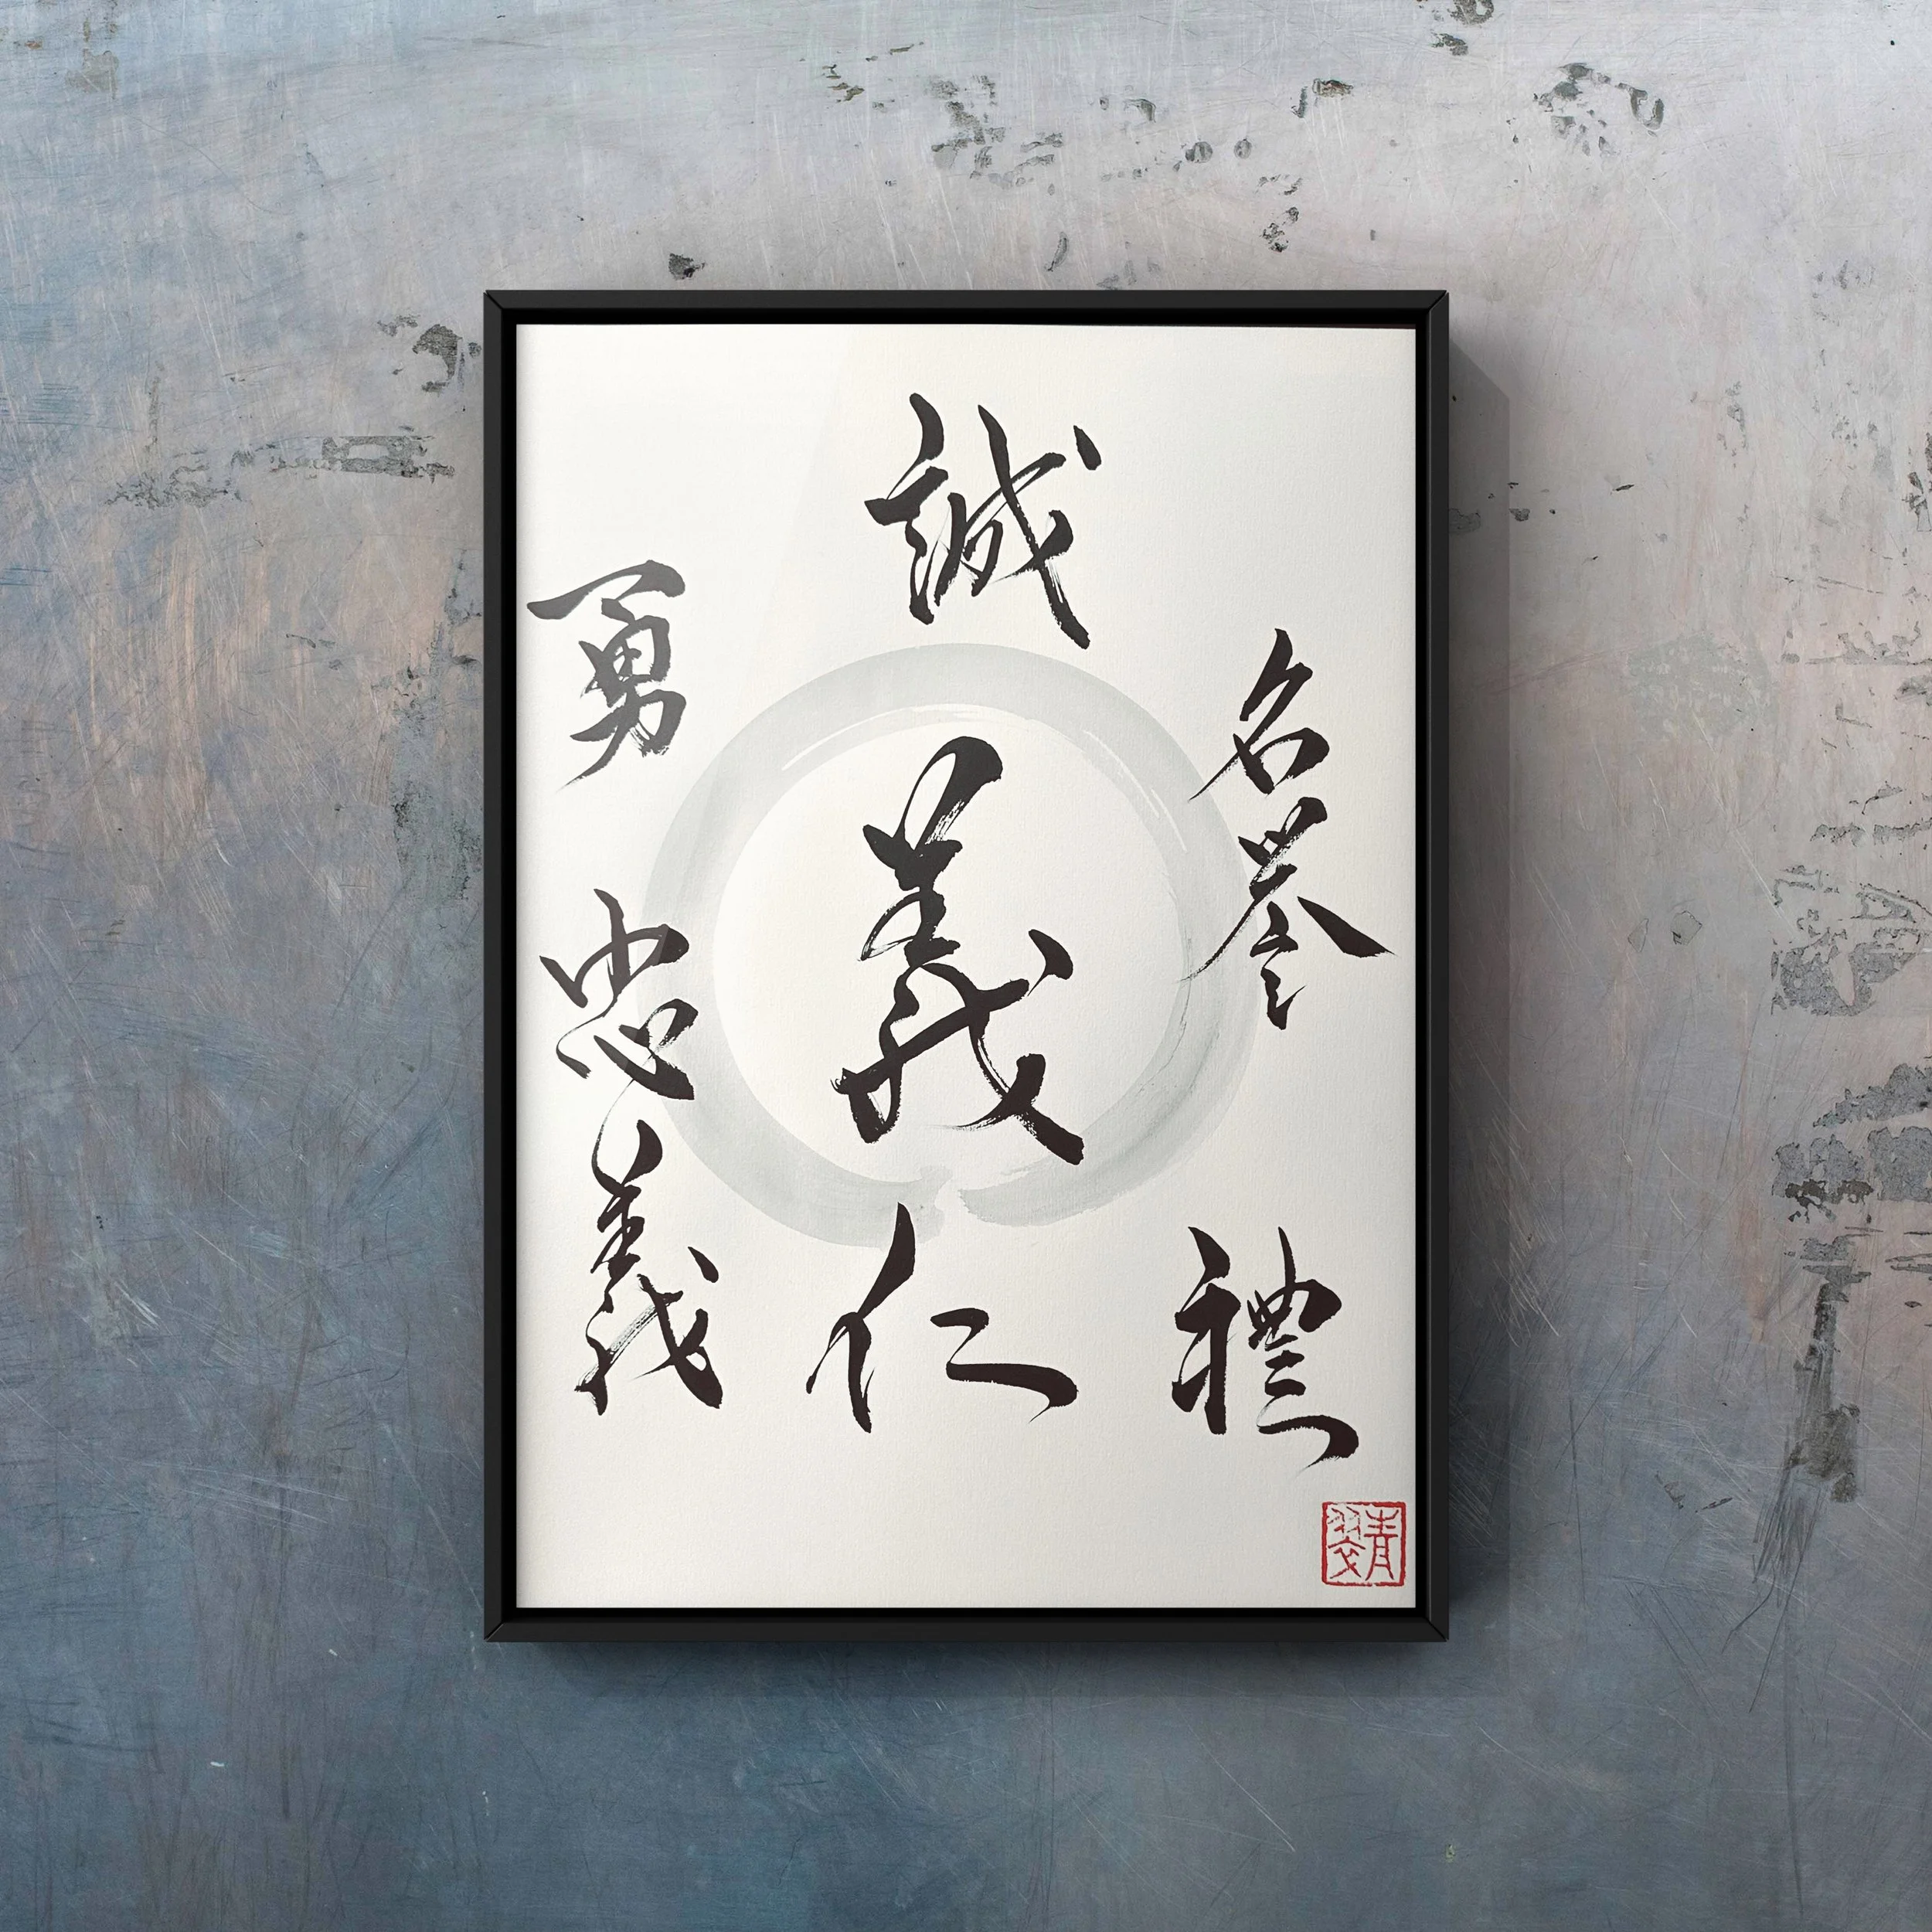 誠
名誉
義
勇
忠義
仁
禮
青翠